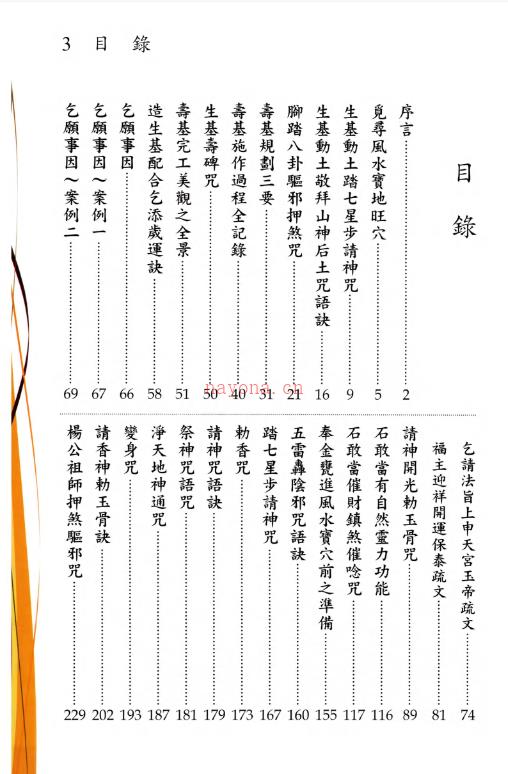 3 目錄
目錄
序言 2
覓尋風水寶地旺穴 5
生基動土踏七星步請神咒 9
生基動土敬拜山神后土咒語訣 16
腳踏八卦驅邪押煞咒 21
壽基規劃三要 31
壽基施作過程全記錄 40
生基壽碑咒 50
壽基完工美觀之全景 51
造生基配合乞添歲運訣 58
乞願事因 66
乞願事因~案例一 67
乞願事因~案例二 69
乞請法旨上申天宮玉帝疏文 74
福主迎祥開運保泰疏文 81
請神開光勅玉骨咒 89
石敢當有自然靈力功能 116
石敢當催財鎮煞催唸咒 117
奉金甕進風水寶穴前之準備 155
五雷轟陰邪咒語訣 160
踏七星步請神咒 167
勅香咒 173
請神咒語訣 179
祭神咒語咒 181
淨天地神通咒 187
變身咒 193
請香神勅玉骨訣 202
楊公祖師押煞驅邪咒 229
nayona.cn